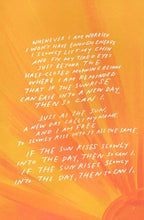 WHENEVER I AM WORRIED
I WON'T HAVE ENOUGH ENERGY
I SLOWLY LIFT MY CHIN
AND TIP MY TIRED EYES
JUST BEYOND THE
HALF-CLOSED MORNING BLINDS
WHERE I AM REMINDED
THAT IF THE SUNRISE
CAN EASE INTO A NEW DAY,
THEN SO CAN I.
JUST AS THE SUN,
A NEW DAY CALLS MY NAME,
AND I AM FREE
TO SLOWLY RISE INTO IT ALL THE SAME.
IF THE SUN RISES SLOWLY
INTO THE DAY, THEN SO CAN I.
IF THE SUN RISES SLOWLY
INTO THE DAY, THEN SO CAN I.